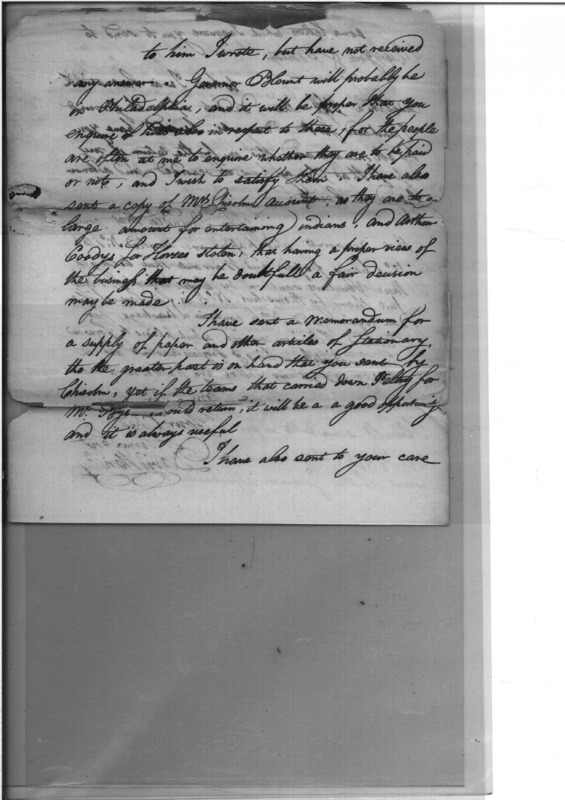 to him I wrote, but have not received
any answer. Governor Blount will probably be
in Philadelphia, and it will be proper that you
enquire of him also in respect to those, for the people
are often at me to enquire whether they are to be paid
or not, and I wish to satisfy them. I have also
sent a copy of Mr. Chisolm Account, as they are to a
large amount for entertaining indians, and Arthur
Coodys for Horses stolen, that having a proper view of
the business that may be doubtfull a fair decision
may be made.
I have sent a memorandum for
a supply of paper and other articles of Stationary,
tho the greater part is on hand that you sent by
Chisolm, yet if the teams that carried down Peltry for
Mr. should return, it will be a a good opportunity
and it is always useful
I have also sent to your care